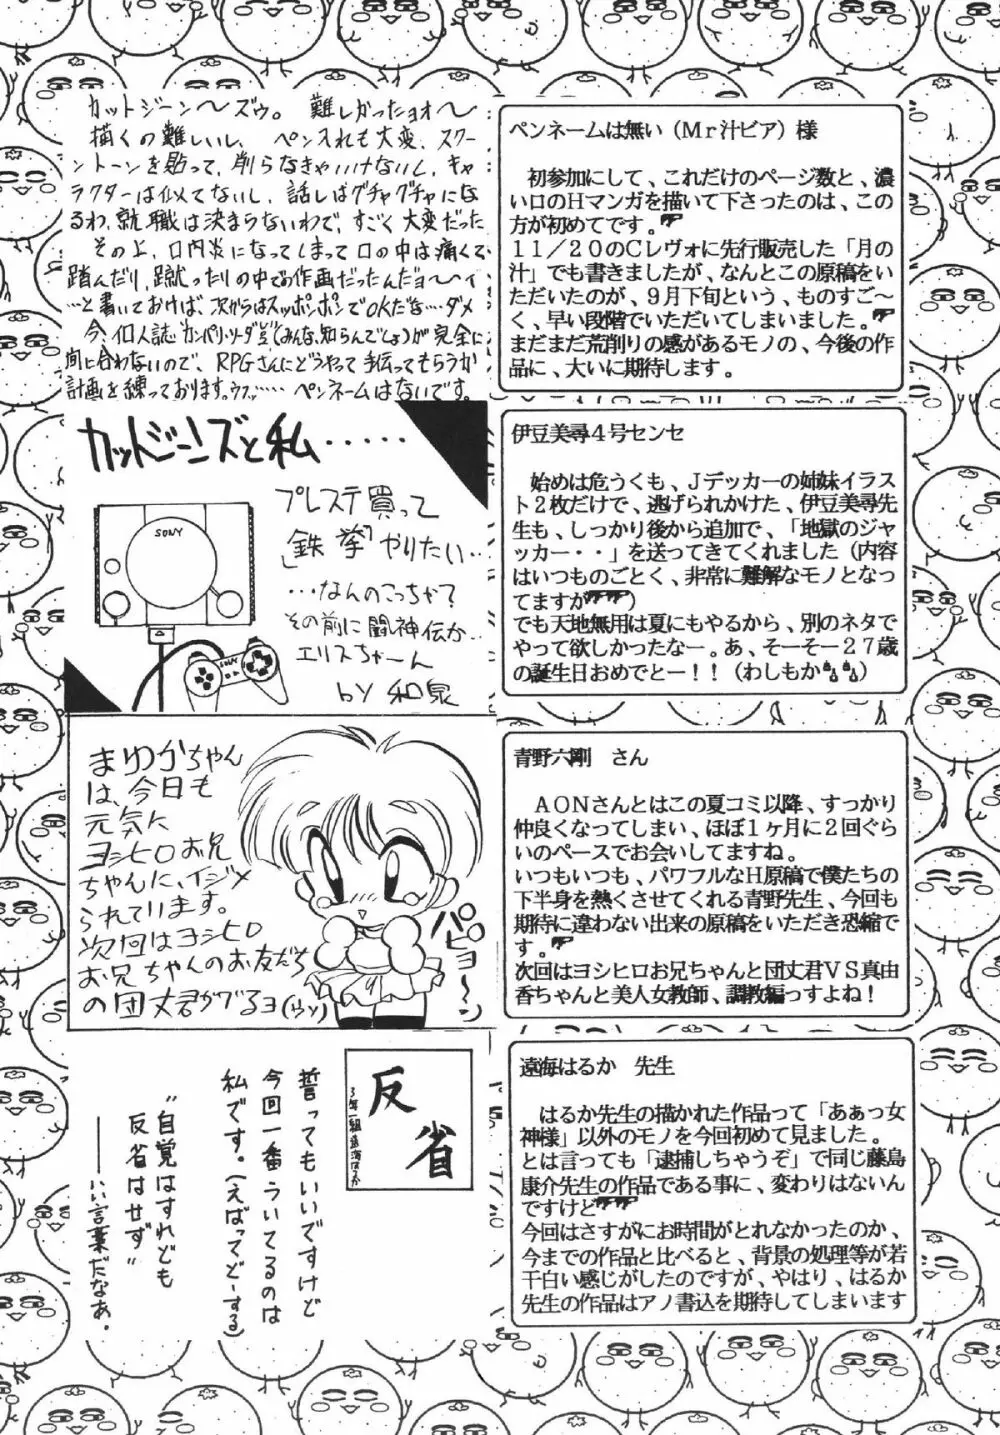 カットジーン〜ズゥ。 難しかったョォ〜
描くの難しいし、ペン入れも大変、スクリ
ーントーンを貼って、削らなきゃいけないし、キャ
ラクターは似てないし、話しはグチャグチャにな
るわ、就職は決まらないわで、すごく大変だった
その上、口内炎になってしまって口の中は痛くて、
踏んだり、蹴ったりの中でお作画だったんだョ〜〜ィ
…と書いておけば、次からはスッポンポンでOKだな…ダメ
今、個人誌
(みんな知らんでしょ)が完全に
間に合わないので、RPGさんにどうやって手伝ってもらうか
計画を練っております。ウフッ……ペンネームはないです。
ペンネームは無い(Mr汁ビア)様
初参加にして、これだけのページ数と、濃
い口のHマンガを描いて下さったのは、この
方が初めてです。
11/20のCレヴォに先行販売した「月の
汁」でも書きましたが、なんとこの原稿をい
ただいたのが、9月下旬という、ものすご〜
く、早い段階でいただいてしまいました。
まだまだ荒削りの感があるモノの、今後の作
品に、大いに期待します。
カットジーンズと私・・・・・
SONY
SONY
プレステ買って
「鉄拳」やりたい…
…なんのこっちゃ?
その前に闘神伝か…
エリスちゃーん
by 和泉
伊豆美尋4号センセ
始めは危うくも、Jデッカーの姉妹イラス
ト2枚だけで、逃げられかけた、伊豆美尋先
生も、しっかり後から追加で、「地獄のジャ
ッカー・・」を送ってきてくれました(内容
はいつものごとく、非常に難解なモノとなっ
てますが)
でも天地無用は夏にもやるから、別のネタで
やって欲しかったなー。あ、そーそー27歳
の誕生日おめでとー!!(わしもか)
まゆかちゃん
は、今日も
元気に
ヨシヒロお兄
ちゃんに、イジメ
られています。
次回はヨシヒロ
お兄ちゃんのお友だち
の団丈君がでるョ(ウソ)
パピョ〜〜ン
青野六剛 さん
AONさんとはこの夏コミ以降、すっかり
仲良くなってしまい、ほぼ1ヶ月に2回ぐら
いのペースでお会いしてますね。
いつもいつも、パワフルなH原稿で僕たちの
下半身を熱くさせてくれる青野先生、今回も
期待に違わない出来の原稿をいただき恐縮で
す。
次回はヨシヒロお兄ちゃんと団丈君VS真由
香ちゃんと美人女教師、調教編っすよね!
反省
3年一組遠海はるか
誓ってもいいですけど
今回一番ういてるのは
私です。(えばってどーする)
"自覚はすれども
反省はせず"
――いい言葉だなあ。
遠海はるか 先生
はるか先生の描かれた作品って「あぁっ女
神様」以外のモノを今回初めて見ました。
とは言っても「逮捕しちゃうぞ」で同じ藤島
康介先生の作品である事に、変わりはないん
ですけど
今回はさすがにお時間がとれなかったのか、
今までの作品と比べると、背景の処理等が若
干白い感じがしたのですが、やはり、はるか
先生の作品はアノ書込を期待してしまいます